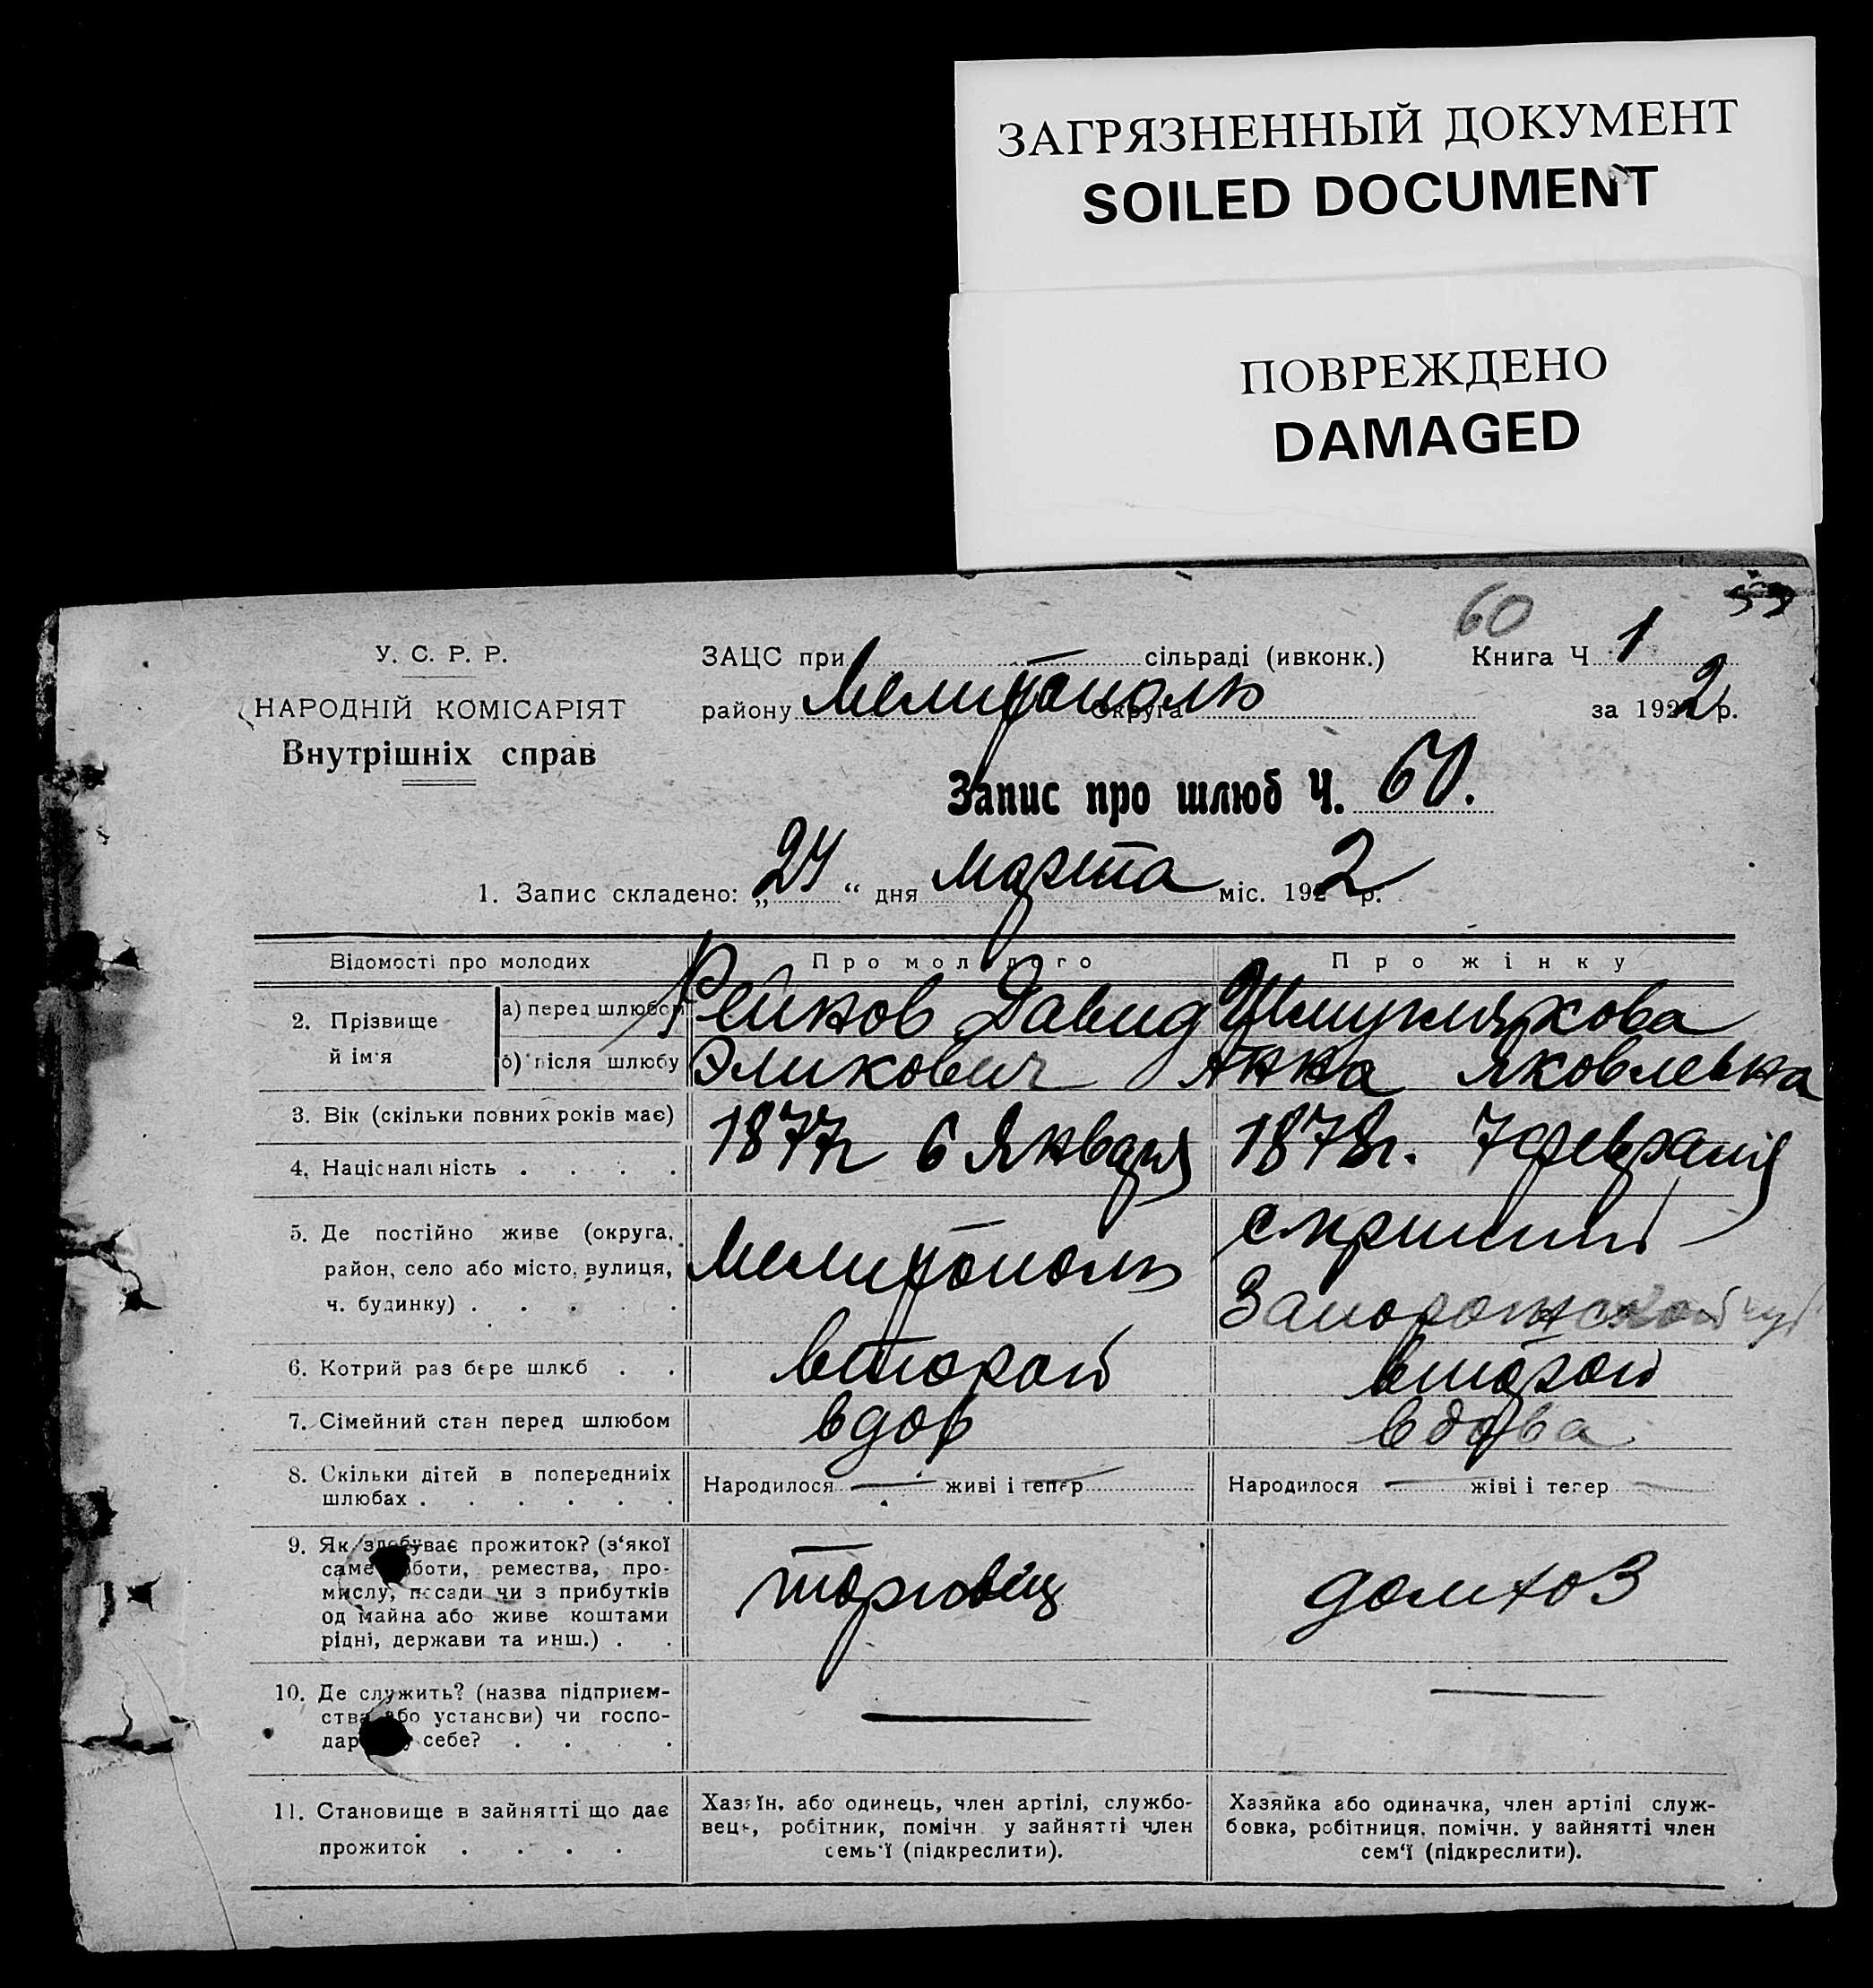 ЗАГРЯЗНЕННЫЙ ДОКУМЕНТ
SOILED DOCUMENT
ПОВРЕЖДЕНО
DAMAGED
60
У. С. Р. Р.
ЗАЦС при сільраді (ивконк.) Книга Ч 1
НАРОДНІЙ КОМІСАРІЯТ
району Мелитополь округа за 1922 р.
Внутрішніх справ
Запис про шлюб Ч. 60.
1. Запис складено: „24“ дня марта міс. 1922 р.
Відомості про молодих Про молодого Про жінку
2. Прізвище й ім'я
а) перед шлюбом Рейков Давид
б) після шлюбу Анна Яковлевна
3. Вік (скільки повних років має) 1877г 6 Января 1878г. 7 февраля
4. Національність . . . .
5. Де постійно живе (округа,
район, село або місто, вулиця, Мелитополь
ч. будинку) . . . . . Запорожской губ
6. Котрий раз бере шлюб . . второй второй
7. Сімейний стан перед шлюбом вдов вдова
8. Скільки дітей в попередниіх Народилося — живі і тепер Народилося — жіві і тепер —
шлюбах . . . . . .
9. Як здобуває прожиток? (з'якої
саме роботи, ремества, про-
мислу, посади чи з прибутків торговец домхоз
од майна або живе коштами
рідні, держави та инш.) . .
10. Де служить? (назва підприєм-
ства або установи) чи госпо- — —
дарює у себе? . . . .
11. Становище в зайнятті що дає Хазяїн, або одинець, член артілі, службо- Хазяйка або одиначка, член артілі служ-
вець, робітник, помічн. у зайнятті член бовка, робітниця, помічн. у зайнятті член
прожиток . . . . семь'ї (підкреслити). сем'ї (підкреслити).